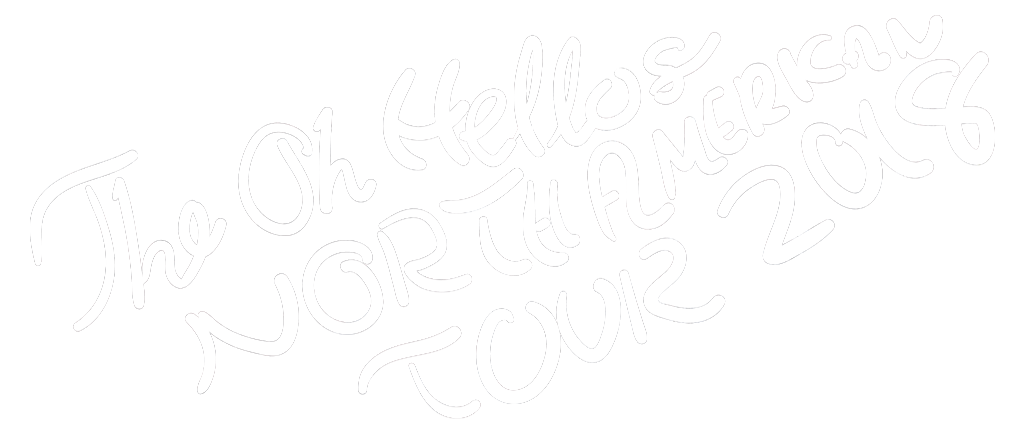 The Oh Hellos
NORTH AMERICAN
TOUR 2018